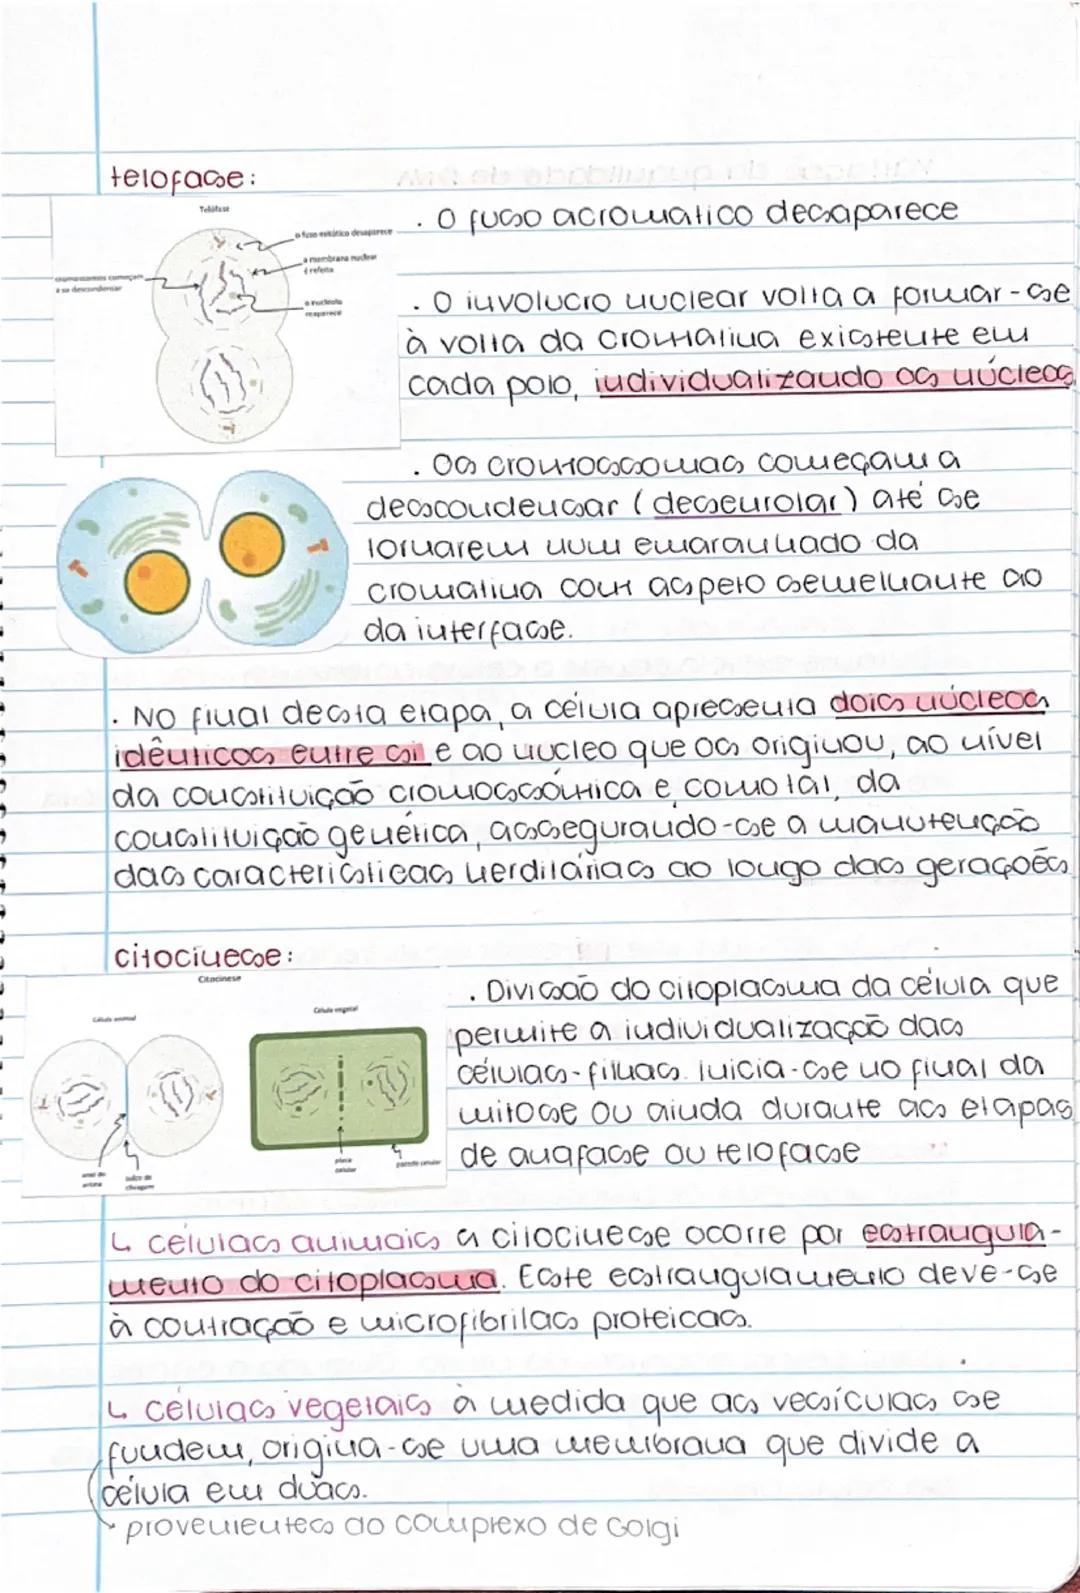 telofase:
Telófase
o fuso mitótico desaparece
a membrana nuclear
é refeita
cromossomos começam
a se descondensar
o nucléolo
reaparece
. O fuso acromatico desaparece
. O involucro nuclear volta a formar-se
à volta da cromatina existente em
cada polo, individualizando os núcleos
. Os cromossomas começam a
descondensar (desenrolar) até se
tornarem num emaranhado da
cromatina com aspeto semelhante ao
da interfase.
. No final desta etapa, a célula apresenta dois núcleos
idênticos entre si e ao nucleo que os originou, ao nível
da constituição cromossómica e, como tal, da
constituição genética, assegurando-se a manutenção
das caracteristicas herditárias ao longo das geraçoẽs
citocinese:
Citocinese
Célula animal
Célula vegetal
anel de
actina
sulco de
clivagem
placa
celular
parede celular
. Divisão do citoplasma da célula que
permite a individualização das
células-filhas. Inicia-se no final da
mitose ou ainda durante as etapas
de anafase ou telofase
↳ células animais a citocinese ocorre por estrangula-
mento do citoplasma. Este estrangulamento deve-se
à contração e microfibrilas proteicas.
↳ células vegetais à medida que as vesículas se
fundem, origina-se uma membrana que divide a
célula em duas.
provenientes do complexo de Golgi